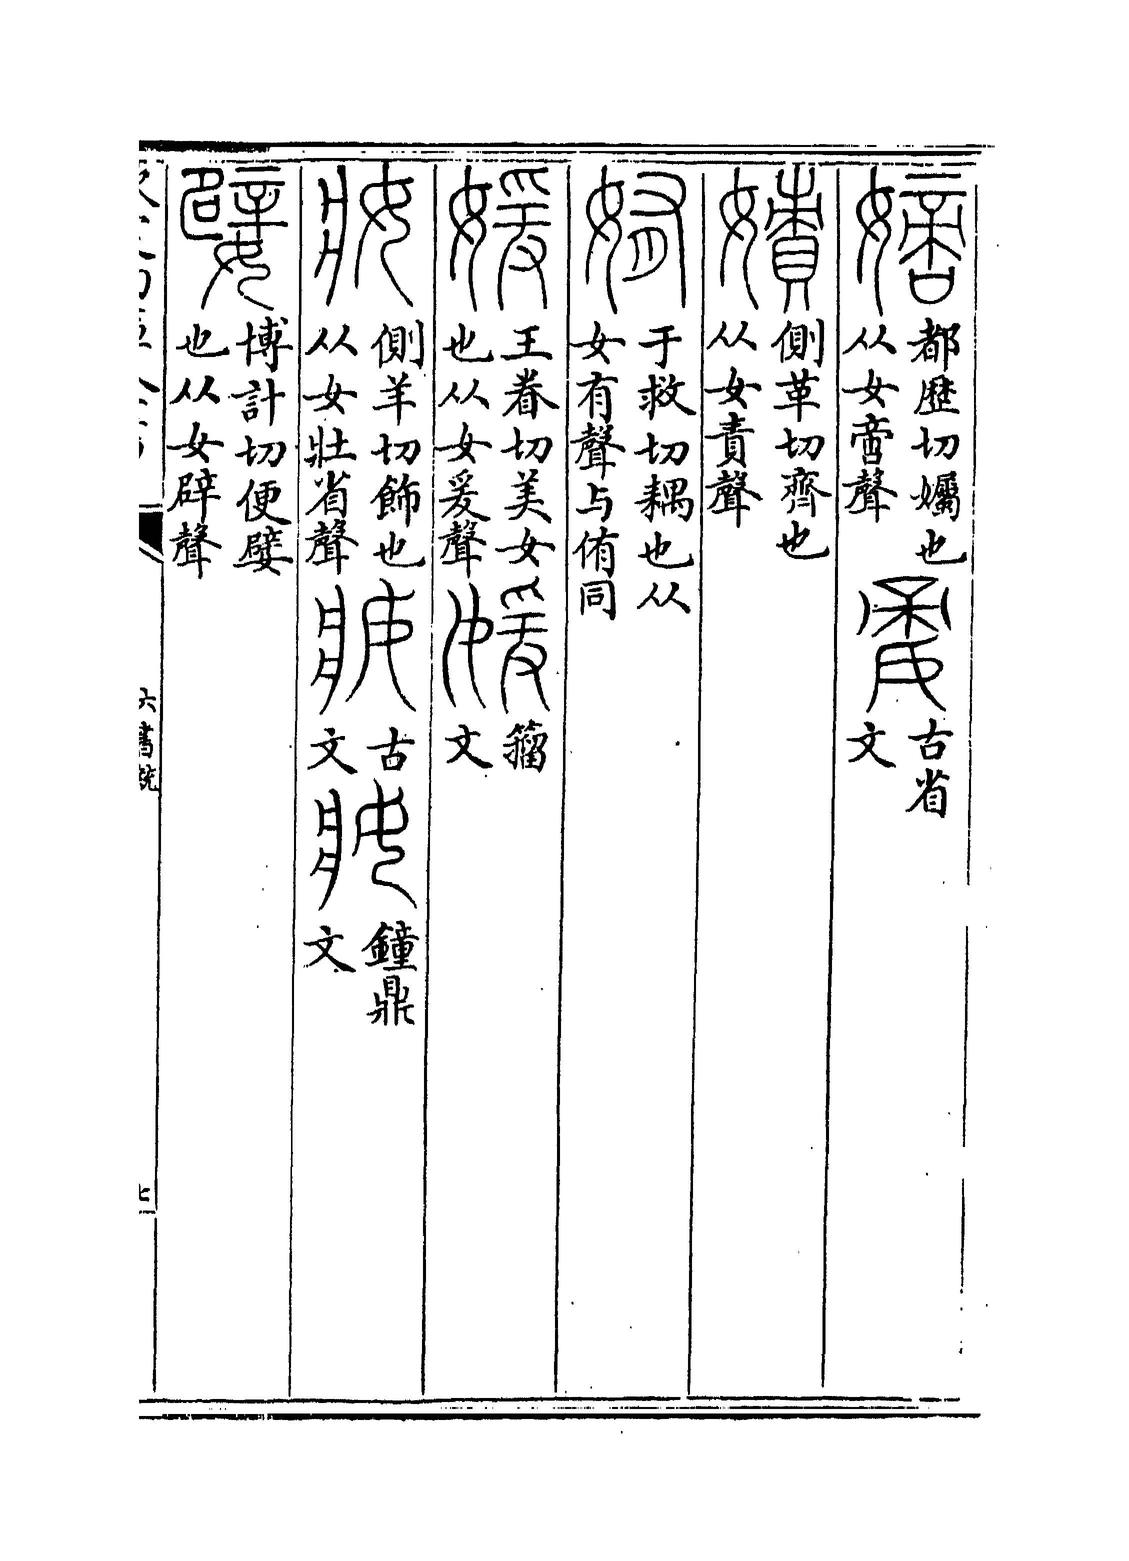 嫡都歴切孎也从女啻聲 古省文
嫧側革切齊也从女責聲
姷于救切耦也从女有聲与侑同
媛王眷切美女也从女爰聲 籀文
妝側羊切飾也从女壯省聲 古文 鐘鼎文
嬖博計切便嬖也从女辟聲
六書統
七